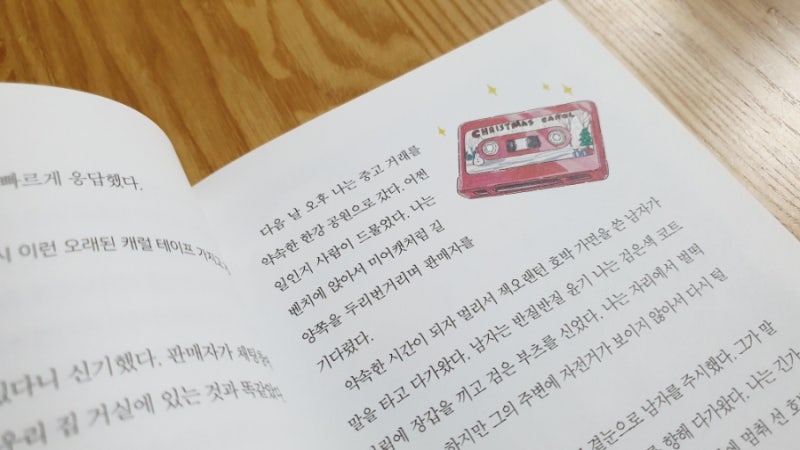 빠르게 응답했다.
시 이런 오래된 캐럴 테이프 가지고
있다니 신기했다. 판매자가
우리 집 거실에 있는 것과 똑같았다.
CHRISTMAS CAROL
다음 날 오후 나는 중고 거래를
약속한 한강 공원으로 갔다. 어쩐
일인지 사람이 드물었다. 나는
벤치에 앉아서 미어캣처럼 길
양쪽을 두리번거리며 판매자를
기다렸다.
약속한 시간이 되자 멀리서 잭오랜턴 호박 가면을 쓴 남자가
말을 타고 다가왔다. 남자는 반질반질 윤기 나는 검은색 코트
차림에 장갑을 끼고 검은 부츠를 신었다. 나는 자리에서 벌떡
하지만 그의 주변에 자전거가 보이지 않아서 다시 털
곁눈으로 남자를 주시했다. 그가 말
를 향해 다가왔다. 나는 긴가
에 멈춰 선 호